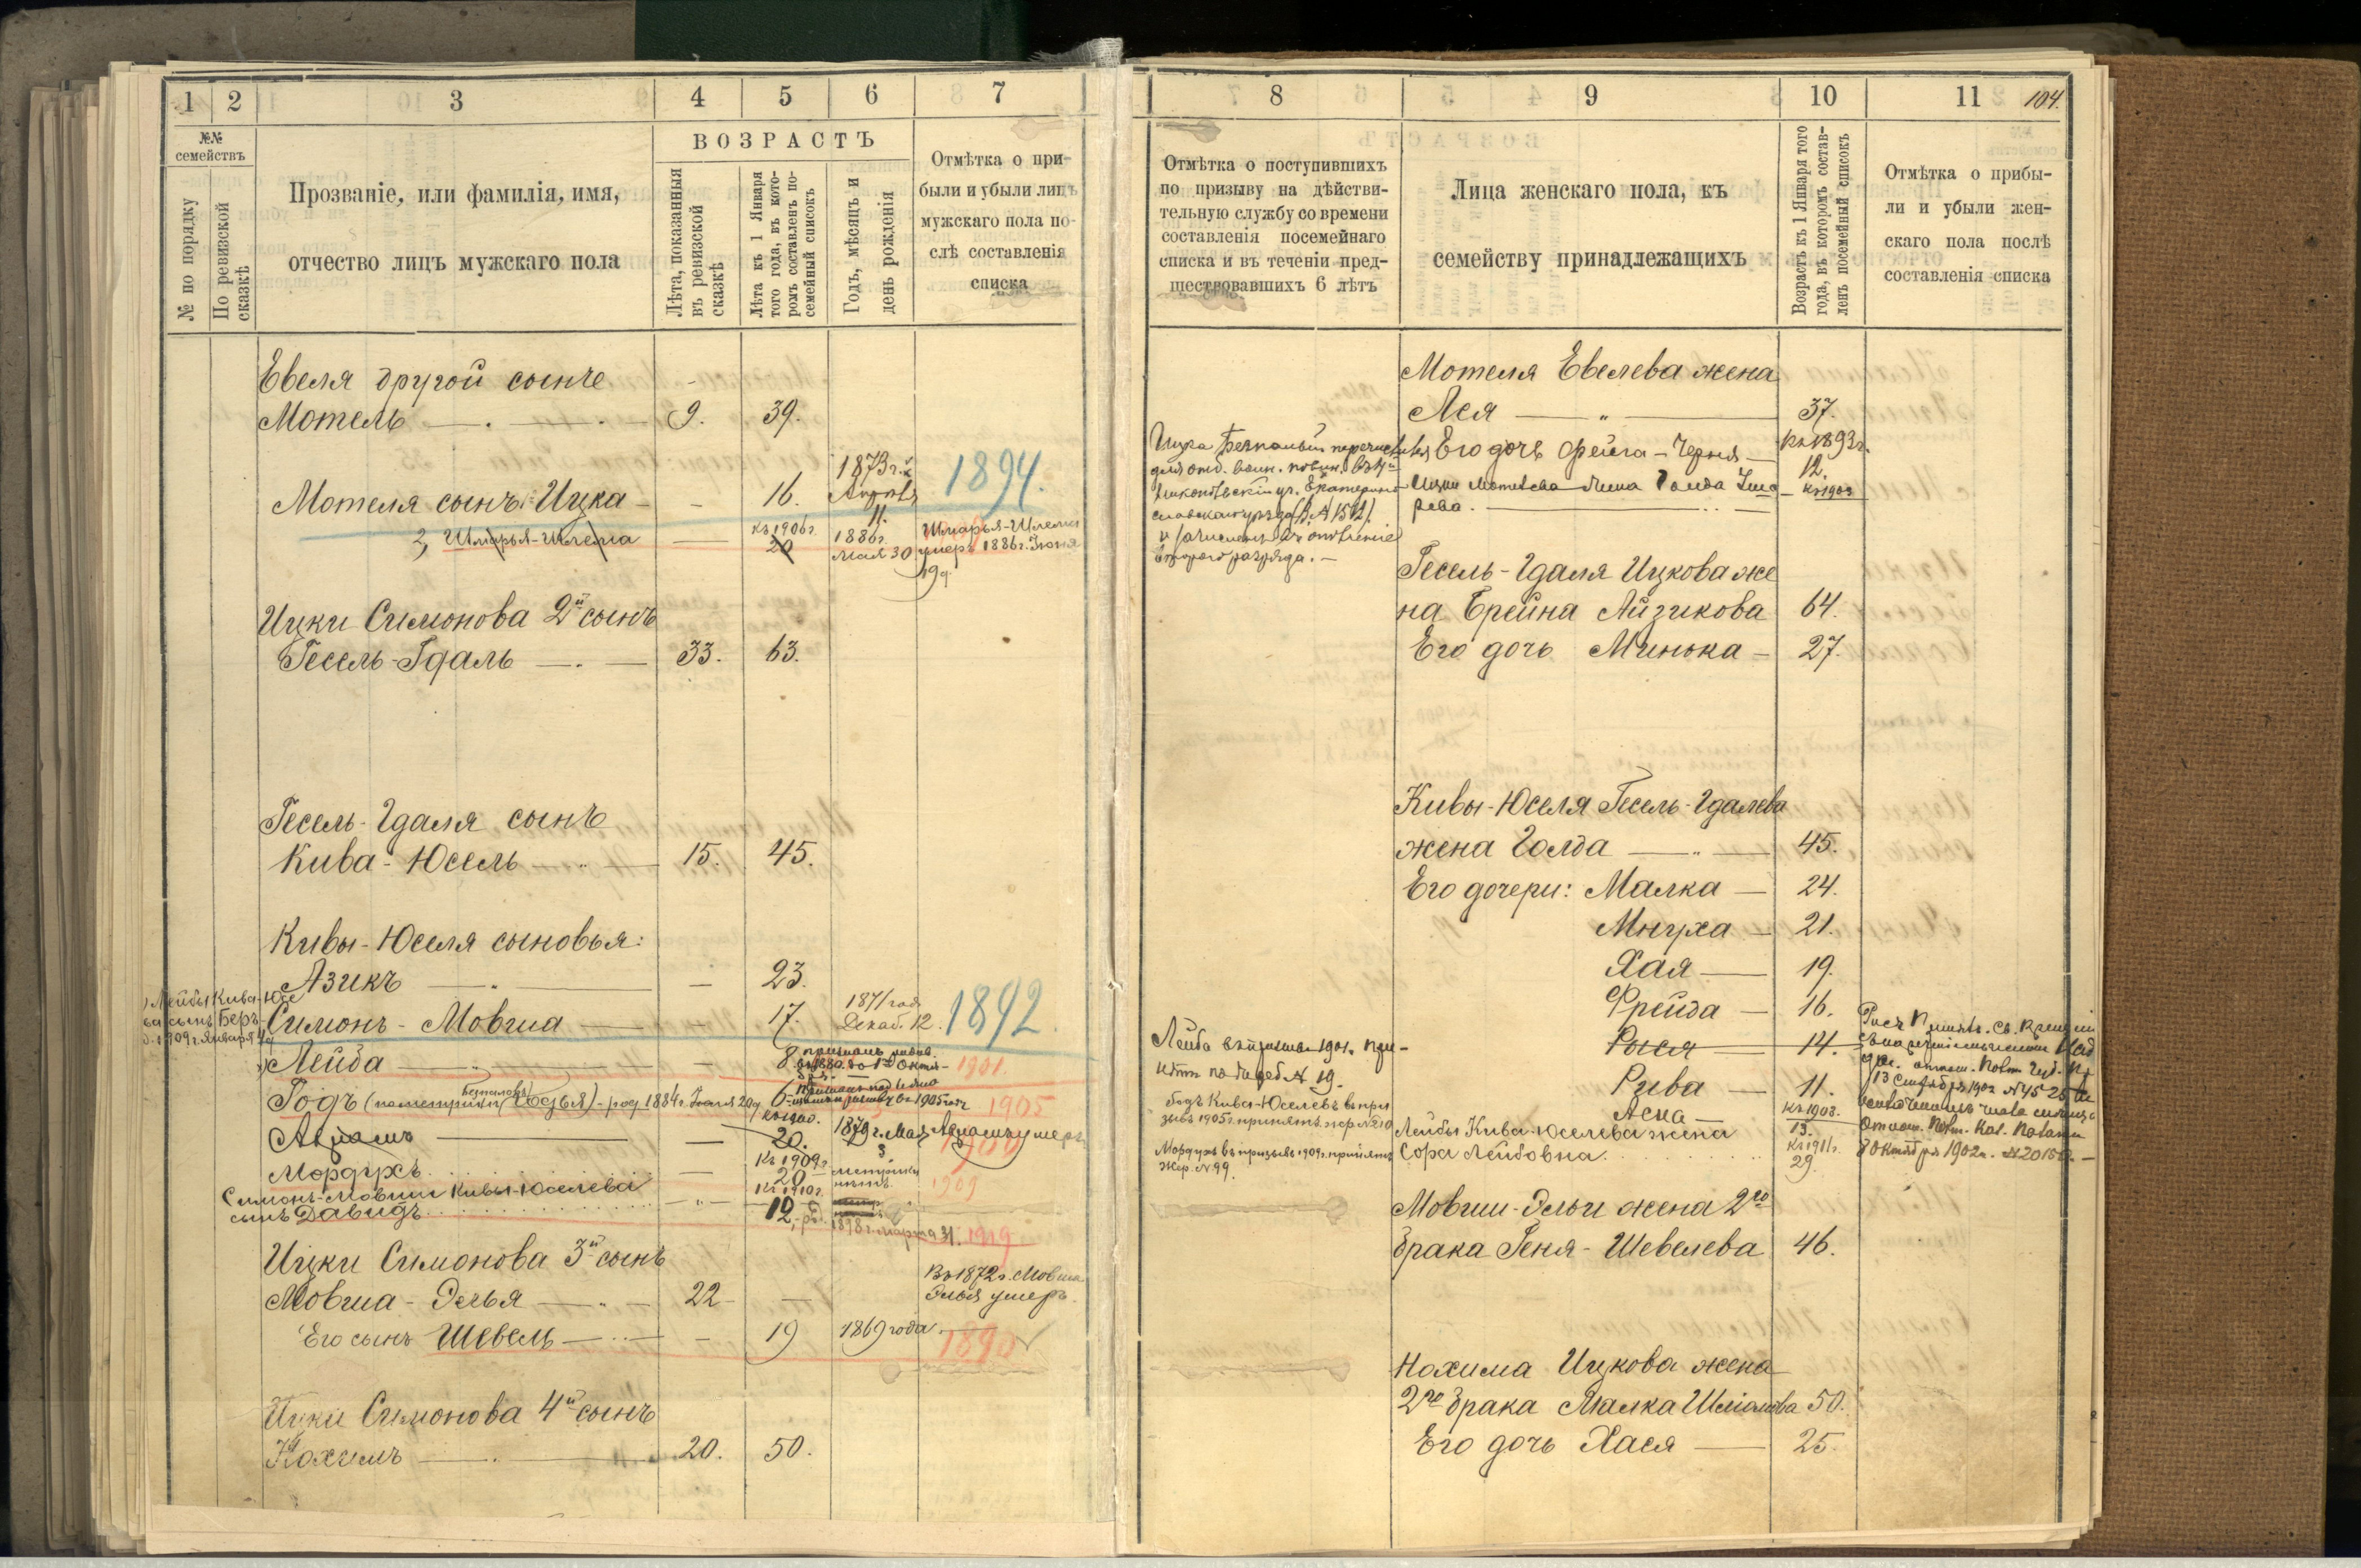 1 2 3 4 5 6 7
№№ семействъ
№ по порядку
По ревизской сказкѣ
Прозваніе, или фамилія, имя,
отчество лицъ мужскаго пола
ВОЗРАСТЪ
Лѣта, показанныя
въ ревизской
сказкѣ
Лѣта къ 1 Января
того года, въ кото-
ромъ составленъ по-
семейный списокъ
Годъ, мѣсяцъ и
день рожденія
Отмѣтка о при-
были и убыли лицъ
мужскаго пола по-
слѣ составленія
списка
Евеля другой сынъ
Мотель 9. 39.
Мотеля сынъ: Ицка - 16. 1873 г. 11. 1894.
2, Шмарья-Шлема къ 1906 г. 20 1886 г. мая 30 Шмарья-Шлема
умеръ 1886 г. Іюня
19 д.
Ицки Симонова 2й сынъ
Гесель-Гдаль 33. 63.
Гесель-Гдаля сынъ
Кива-Юсель 15. 45.
Кивы-Юселя сыновья:
Азикъ - 23.
Лейбы Кива-Юсе
ва сынъ Беръ
1909 г. Января
Симонъ-Мовша - 17. 1871 год Декаб. 12. 1892.
Лейба - 8 1901
Годъ (по метрики Годья) - род. 1884 г. 20 д. 6 1905
Абрамъ - 20. 1879 г. Мая 3 Абрамъ умеръ 1900
Мордухъ - къ 1909 г. 20 метрики нѣтъ. 1909
Симонъ-Мовши Кивы-Юселева
сынъ Давидъ къ 1910 г. 12 1898 г. марта 31. 1919
Ицки Симонова 3й сынъ
Мовша-Элья 22 - Въ 1872 г. Мовша
Элья умеръ.
Его сынъ Шевель - 19 1869 года 1890
Ицки Симонова 4й сынъ
Нохимъ 20. 50.
8 9 10 11 104.
Отмѣтка о поступившихъ
по призыву на дѣйстви-
тельную службу со времени
составленія посемейнаго
списка и въ теченіи пред-
шествовавшихъ 6 лѣтъ
Лица женскаго пола, къ
семейству принадлежащихъ
Возрастъ къ 1 Января того
года, въ которомъ состав-
ленъ посемейный списокъ
Отмѣтка о прибы-
ли и убыли жен-
скаго пола послѣ
составленія списка
Мотеля Евелева жена
Лея 37.
Его дочь Фейга-Черня къ 1893 г. 12.
Ицки Мотелева жена Голда къ 1903
Ицка
для отб. воин. повин.
второго разряда.
Гесель-Гдаля Ицкова же
на Брейна Айзикова 64.
Его дочь Минька 27.
Кивы-Юселя Гесель-Гдалева
жена Голда 45.
Его дочери: Малка 24.
Мнуха 21.
Хая 19.
Фрейда 16.
Рыся 14.
Рива 11.
Аска къ 1903. 13.
Лейбы Кива-Юселева жена
Сора Лейбовна. къ 1911 г. 29.
Лейба въ призывъ 1901 г. при-
нятъ по жереб. № 19.
Годъ Кива-Юселевъ въ при
зывъ 1905 г. принятъ жер. № 210
Мордухъ въ призывъ 1909 г. принятъ
жер. № 99.
13 Сентября 1902 № 4525
8 Октября 1902 г.
Мовши-Эльи жена 2го
брака Геня-Шевелева 46.
Нохима Ицкова жена
2го брака Малка Шліомова 50.
Его дочь Хася 25.